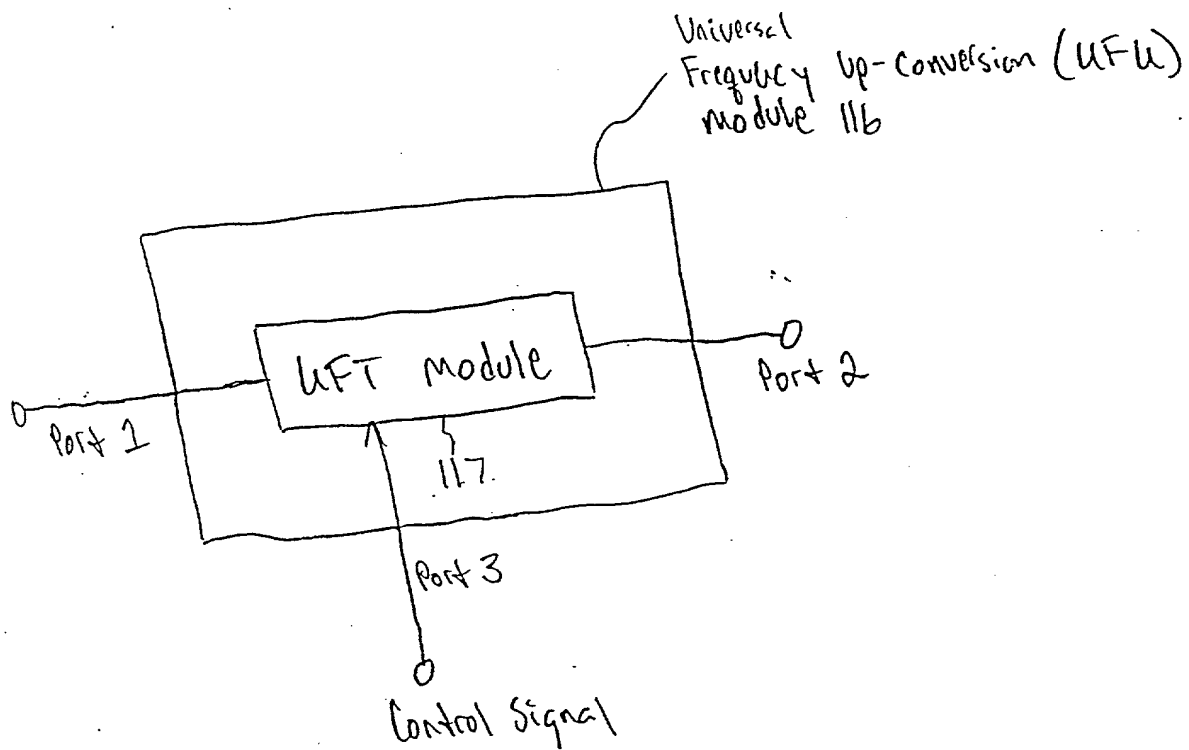 Universal
Frequncy Up-Conversion (UFU)
Module 116
UFT Module
Port 1
Port 2
117
Port 3
Control Signal